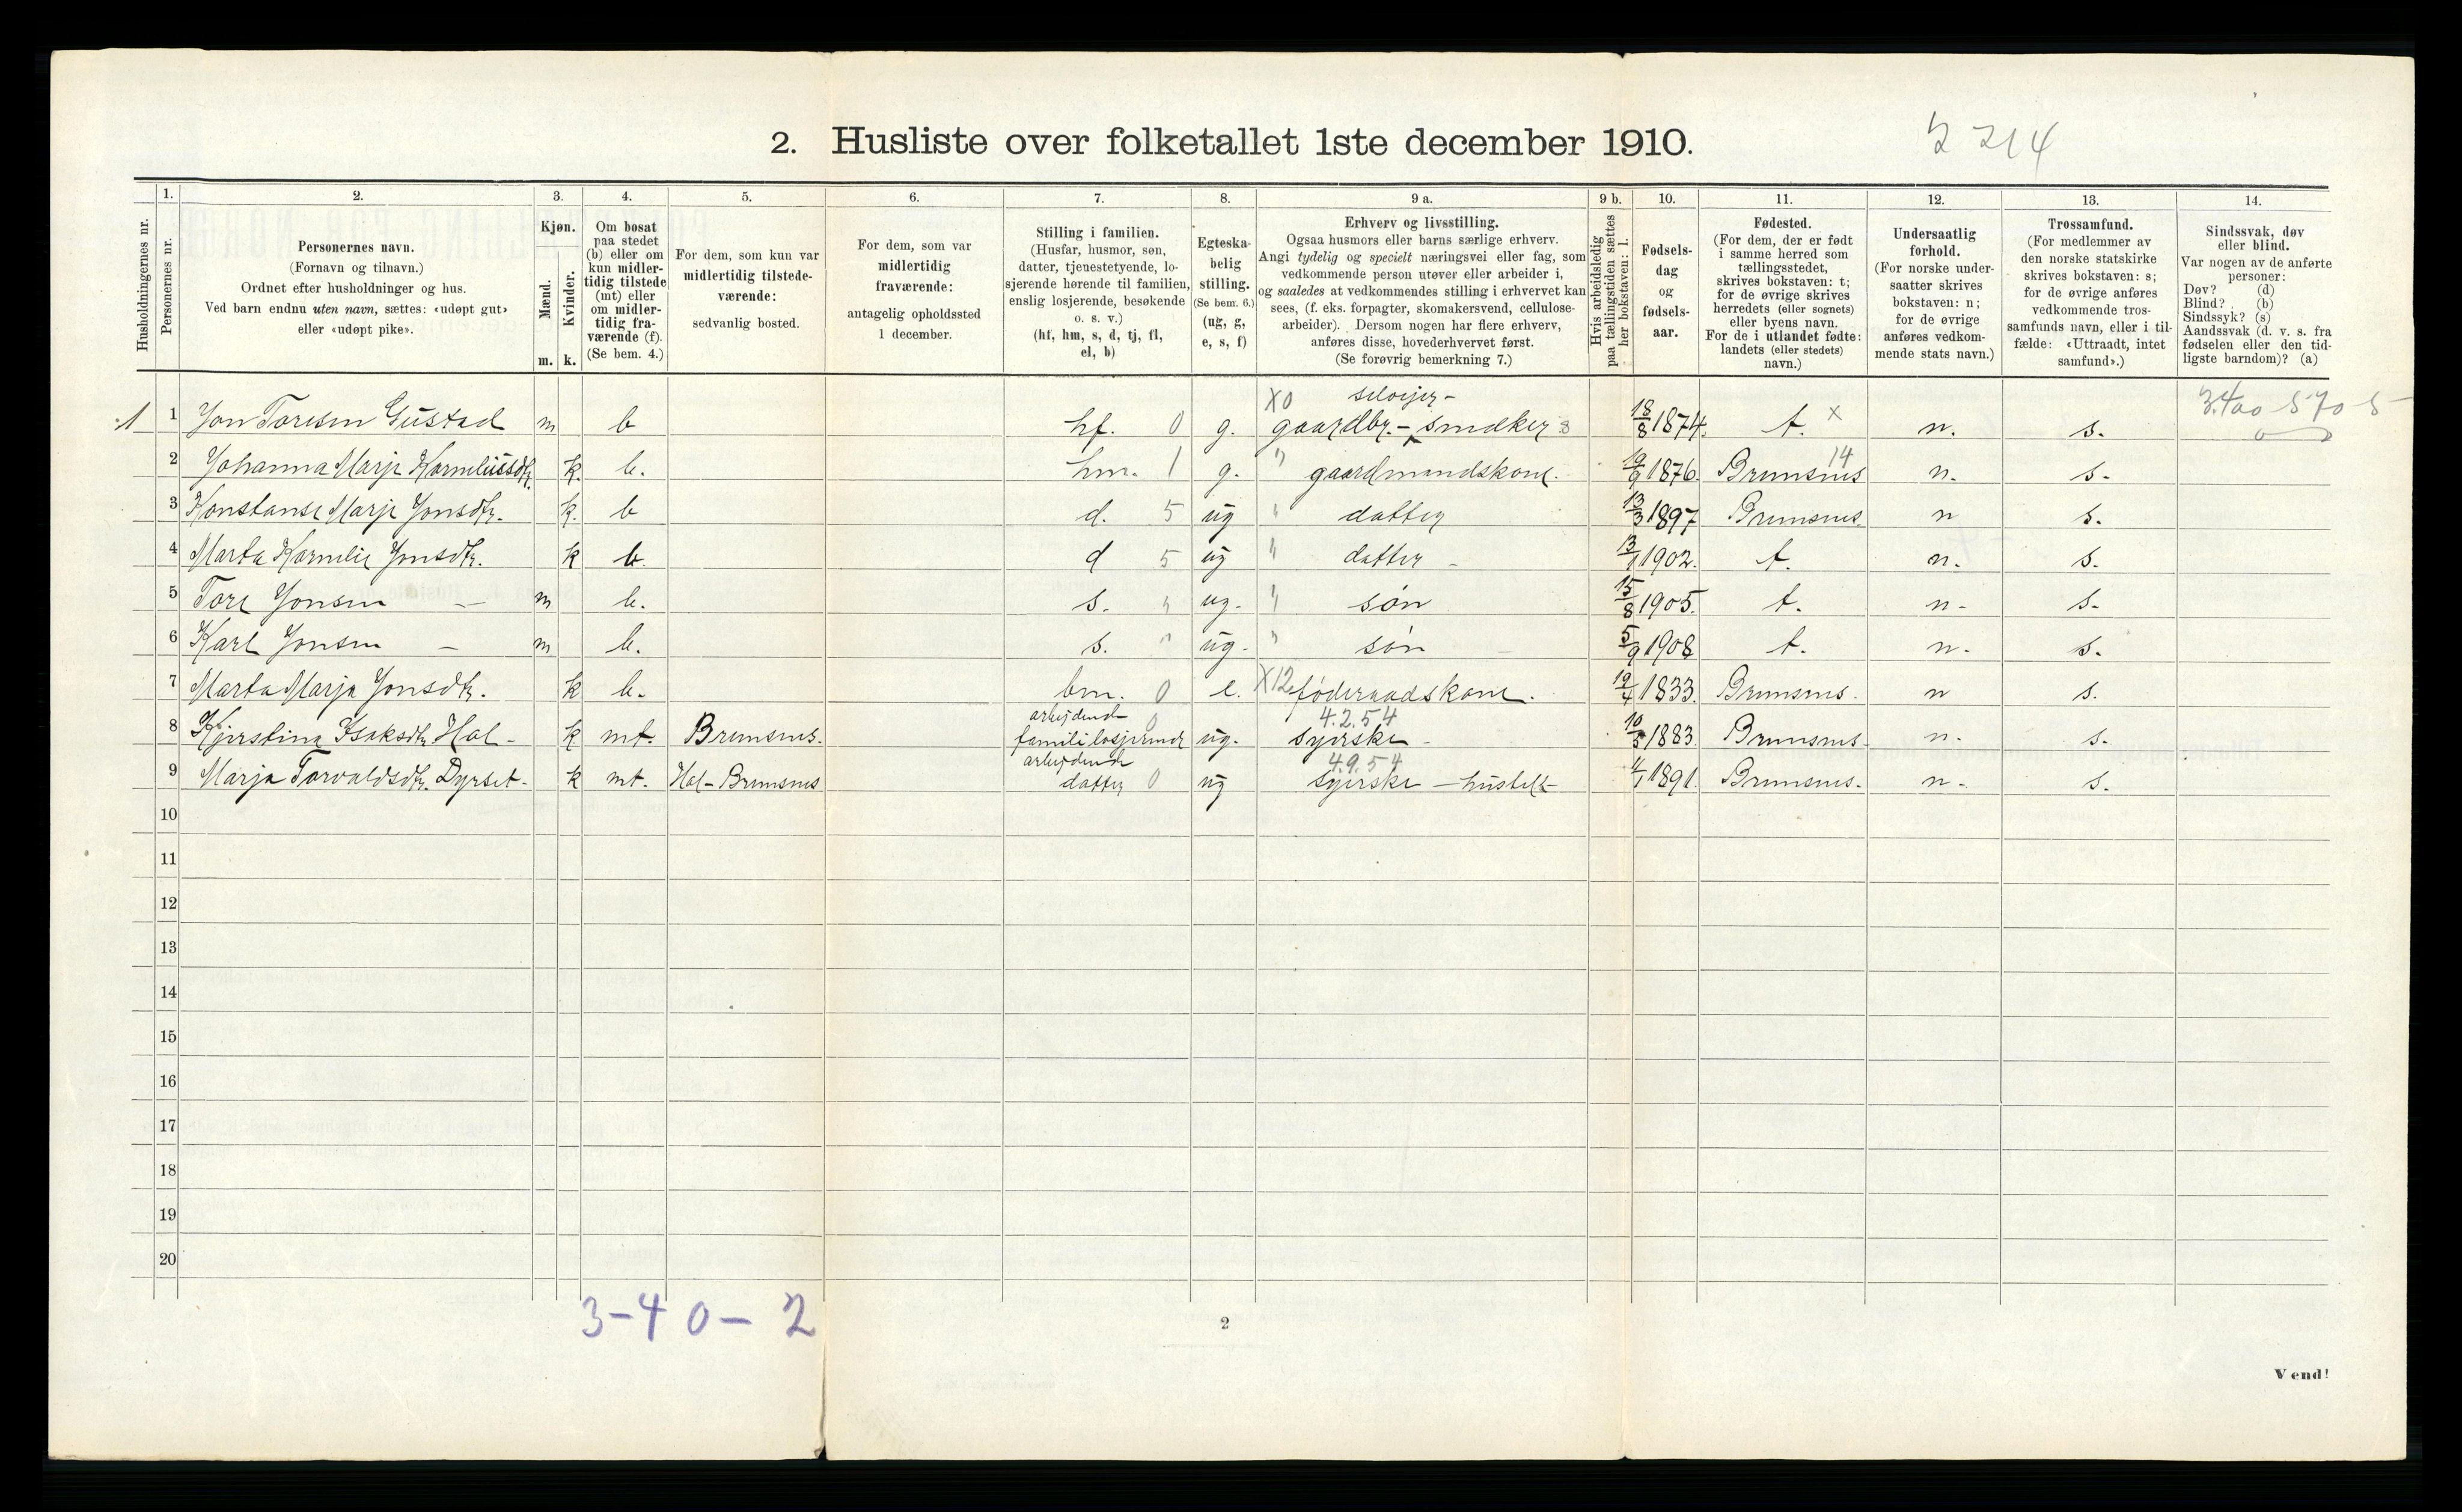 2. Husliste over folketallet 1ste december 1910.
2214
Husholdningernes nr.
1.
Personernes nr.
2.
Personernes navn.
(Fornavn og tilnavn.)
Ordnet efter husholdninger og hus.
Ved barn endnu uten navn, sættes: «udøpt gut»
eller «udøpt pike».
3.
Kjøn.
Mænd.
Kvinder.
m. k.
4.
Om bosat
paa stedet
(b) eller om
kun midler-
tidig tilstede
(mt) eller
om midler-
tidig fra-
værende (f).
(Se bem. 4.)
5.
For dem, som kun var
midlertidig tilstede-
værende:
sedvanlig bosted.
6.
For dem, som var
midlertidig
fraværende:
antagelig opholdssted
1 december.
7.
Stilling i familien.
(Husfar, husmor, søn,
datter, tjenestetyende, lo-
sjerende hørende til familien,
enslig losjerende, besøkende
o. s. v.)
(hf, hm, s, d, tj, fl,
el, b)
8.
Egteska-
belig
stilling.
(Se bem. 6.)
(ug, g,
e, s, f)
9 a.
Erhverv og livsstilling.
Ogsaa husmors eller barns særlige erhverv.
Angi tydelig og specielt næringsvei eller fag, som
vedkommende person utøver eller arbeider i,
og saaledes at vedkommendes stilling i erhvervet kan
sees, (f. eks. forpagter, skomakersvend, cellulose-
arbeider). Dersom nogen har flere erhverv,
anføres disse, hovederhvervet først.
(Se forøvrig bemerkning 7.)
9 b.
Hvis arbeidsledig
paa tællingstiden sættes
her bokstaven: l.
10.
Fødsels-
dag
og
fødsels-
aar.
11.
Fødested.
(For dem, der er født
i samme herred som
tællingsstedet,
skrives bokstaven: t;
for de øvrige skrives
herredets (eller sognets)
eller byens navn.
For de i utlandet fødte:
landets (eller stedets)
navn.)
12.
Undersaatlig
forhold.
(For norske under-
saatter skrives
bokstaven: n;
for de øvrige
anføres vedkom-
mende stats navn.)
13.
Trossamfund.
(For medlemmer av
den norske statskirke
skrives bokstaven: s;
for de øvrige anføres
vedkommende tros-
samfunds navn, eller i til-
fælde: «Uttraadt, intet
samfund».)
14.
Sindssvak, døv
eller blind.
Var nogen av de anførte
personer:
Døv? (d)
Blind? (b)
Sindssyk? (s)
Aandssvak (d. v. s. fra
fødselen eller den tid-
ligste barndom)? (a)
X0 seloijer -
1 1 Jon Toresen Gustad m b hf. 0 g. gaardbr. - smdker 18/8 1874. t. x n. s.
2 Johanna Marje Korneliussdtr. k. b. hm. 1 g. " gaardmandskone. 19/9 1876. Bremsnes 14 n. s.
3 Konstanse Marje Jonsdtr. k. b d. 5 ug " datter 13/3 1897 Bremsnes. n s.
4 Marta Kornelie Jonsdtr. k b. d 5 ug " datter - 13/1 1902. t. n. s.
5 Tore Jonsen — m b. s. " ug. " søn 15/8 1905. t. n- s.
6 Karl Jonsen — m b. s. " ug. " søn 5/9 1908 t. n. s.
7 Marta Marja Jonsdtr. k b. bm. 0 e. X12 føderaadskone. 19/4 1833. Bremsnes. n s.
arbeidende 0 4.2.54
8 Kjerstina Isaksdtr. Hal - k mt. Bremsnes. familie losjerende ug. syerske - 10/5 1883. Bremsnes. n. s.
arbeidende 4.9.54
9 Marja Torvaldsdtr. Dyrset - k mt. Hal - Bremsnes datter 0 ug syerske — 4/1 1891. Bremsnes. n- s.
10
11
12
13
14
15
16
17
18
19
20
3-4 0- 2
2
Vend!